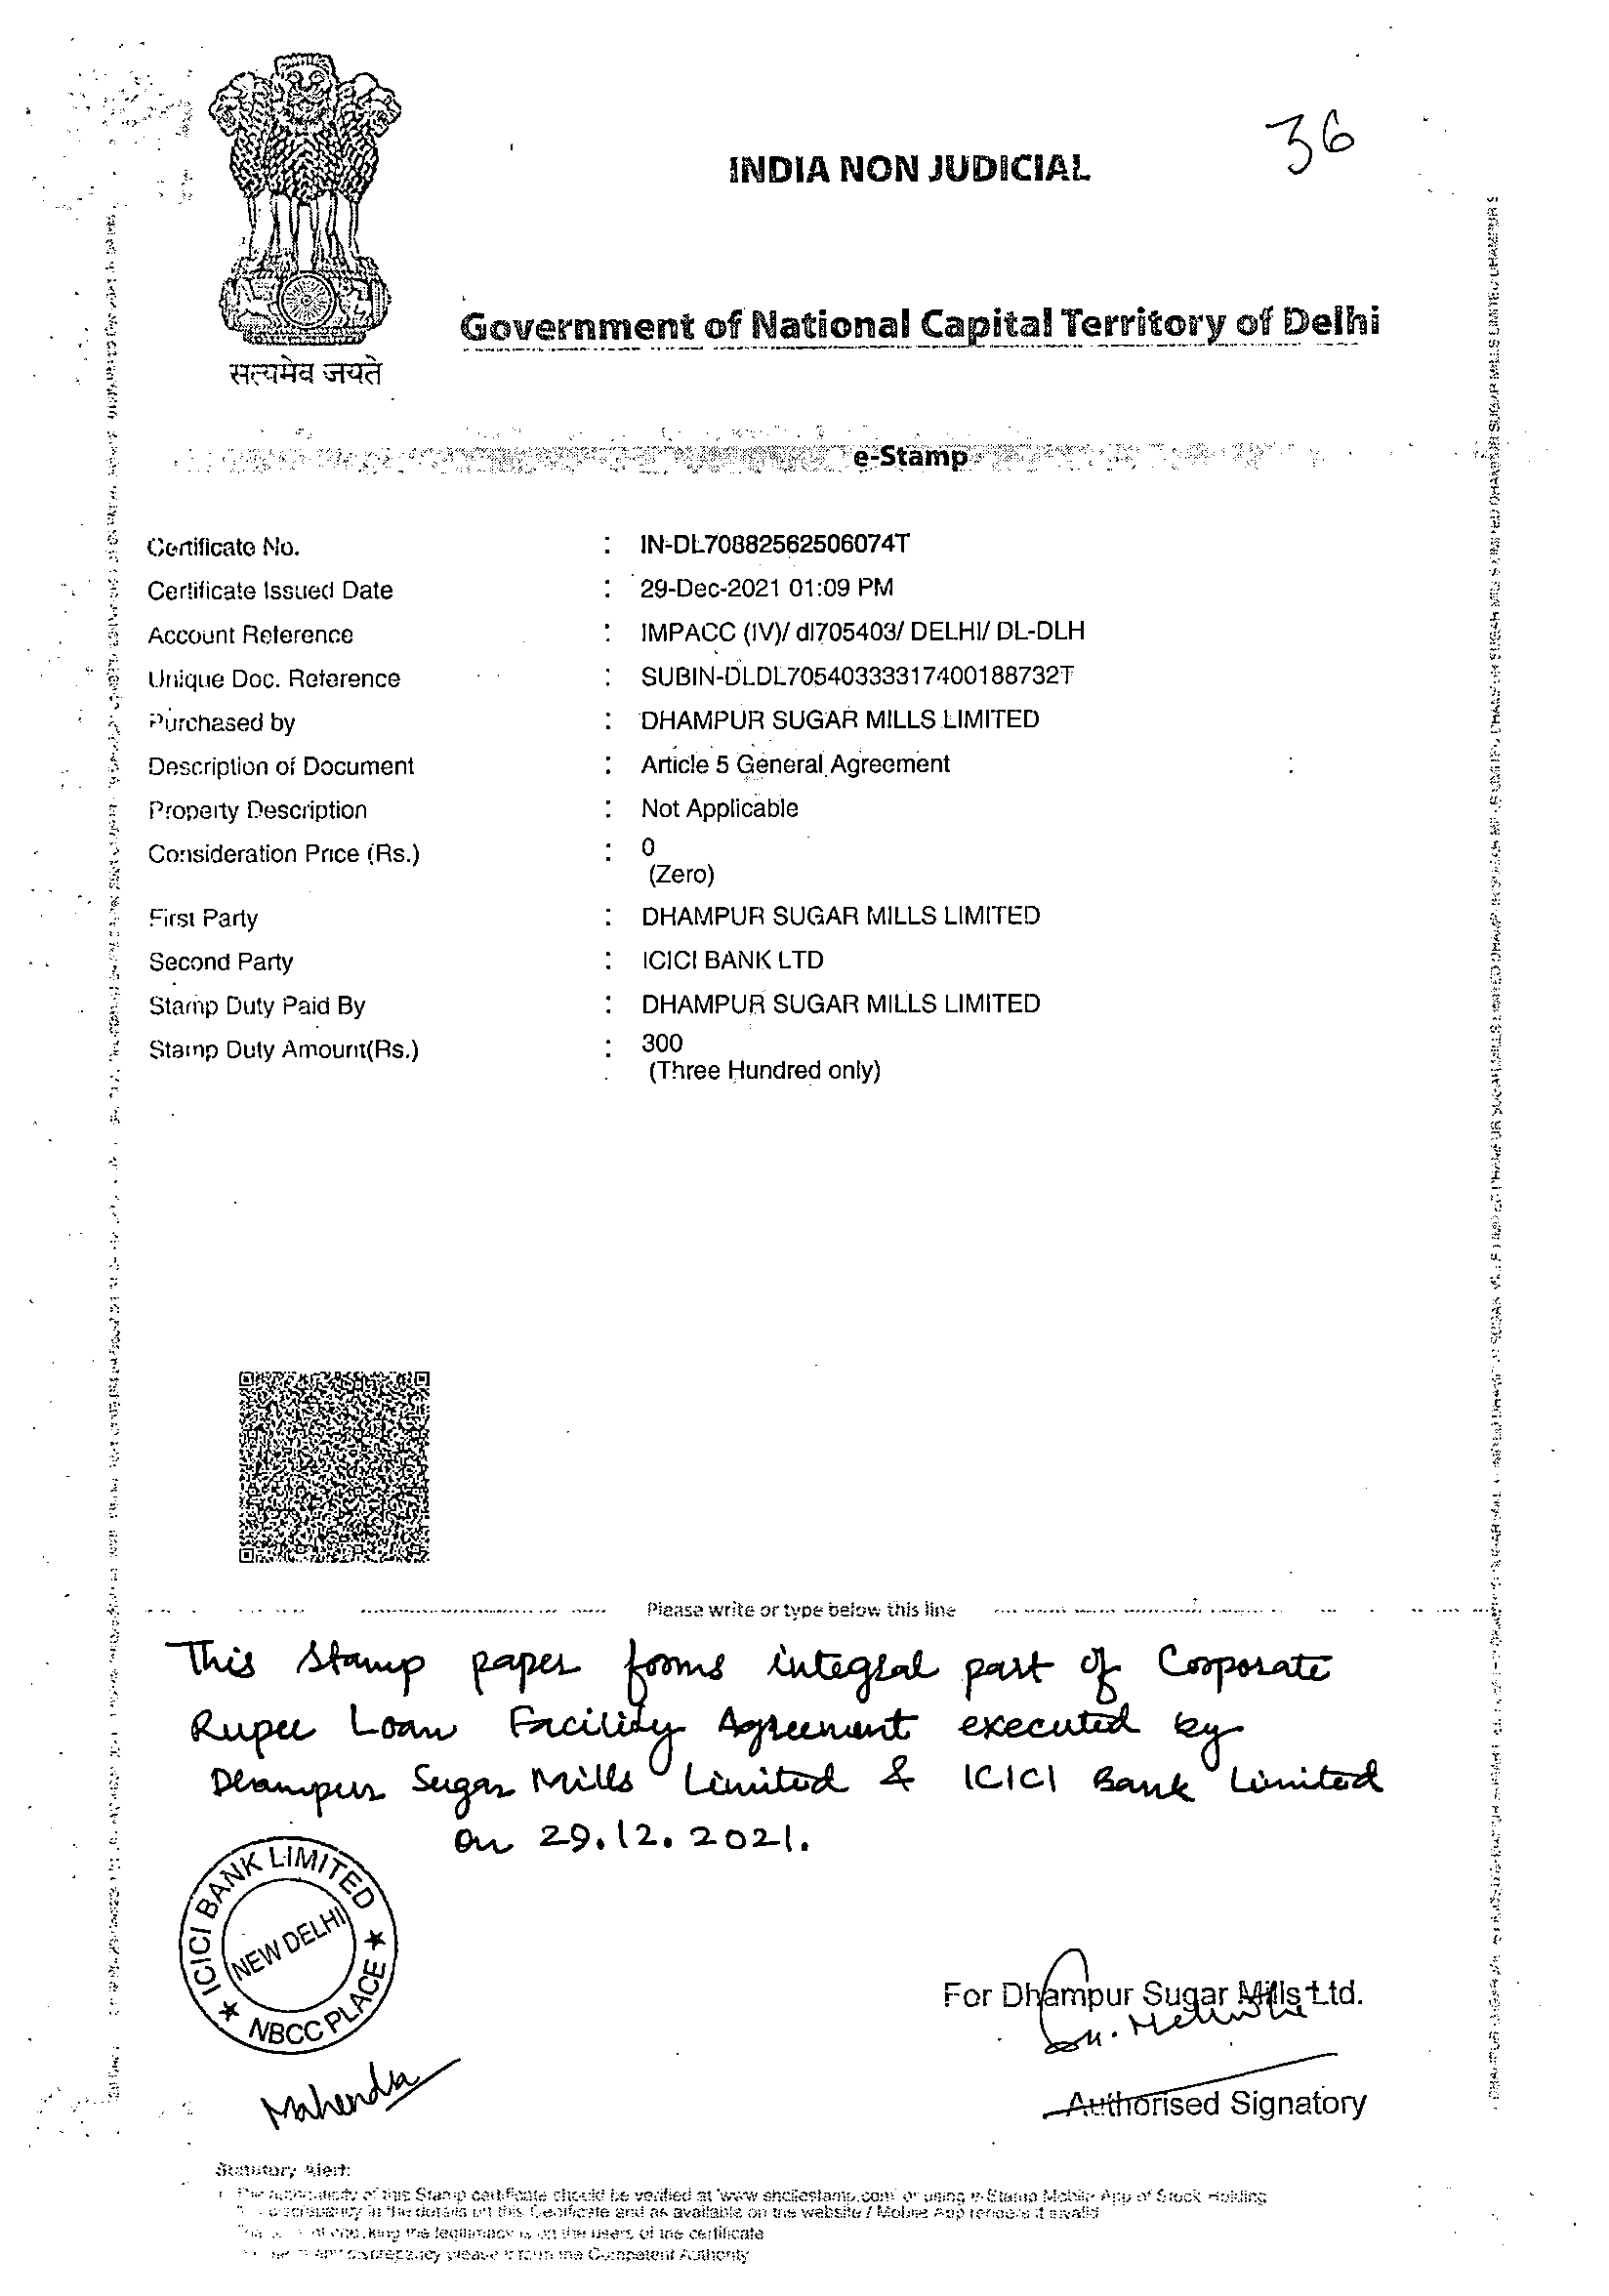 36
INDIA NON JUDICIAL
Government of National Capital Territory of Delhi
सत्यमेव जयते
e-Stamp
Certificate No. : IN-DL70882562506074T
Certificate Issued Date : 29-Dec-2021 01:09 PM
Account Reference : IMPACC (IV)/ dl705403/ DELHI/ DL-DLH
Unique Doc. Reference : SUBIN-DLDL70540333317400188732T
Purchased by : DHAMPUR SUGAR MILLS LIMITED
Description of Document : Article 5 General Agreement
Property Description : Not Applicable
Consideration Price (Rs.) : 0
(Zero)
First Party : DHAMPUR SUGAR MILLS LIMITED
Second Party : ICICI BANK LTD
Stamp Duty Paid By : DHAMPUR SUGAR MILLS LIMITED
Stamp Duty Amount(Rs.) : 300
(Three Hundred only)
Please write or type below this line
This stamp paper forms integral part of Corporate
Rupee Loan Facility Agreement executed by
Dhampur Sugar Mills Limited & ICICI Bank Limited
on 29.12.2021.
ICICI BANK LIMITED
NEW DELHI
NBCC PLACE
Mahendra
For Dhampur Sugar Mills Ltd.
Authorised Signatory
Statutory Alert:
authenticity of this Stamp certificate should be verified at 'www.shcilestamp.com' or using e-Stamp Mobile App of Stock Holding
discrepancy in the details on this Certificate and as available on the website / Mobile App renders it invalid
checking the legitimacy is on the users of the certificate
discrepancy please inform the Competent Authority